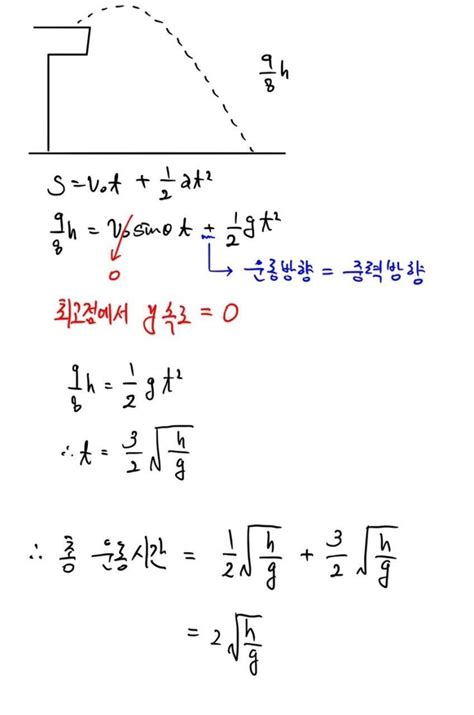 9/8 h
S = v₀t + 1/2 at²
9/8 h = v₀sinθ t + 1/2 gt²
0 → 운동방향 = 중력방향
최고점에서 y속도 = 0
9/8 h = 1/2 gt²
∴ t = 3/2 √(h/g)
∴ 총 운동시간 = 1/2 √(h/g) + 3/2 √(h/g)
= 2√(h/g)